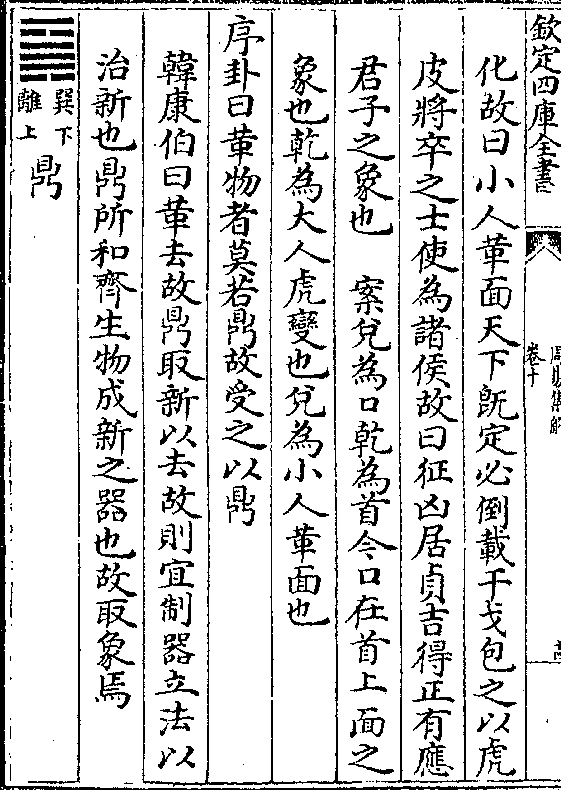 欽定四庫全書
周易集解
卷十
化故曰小人革面天下既定必倒載干戈包之以虎
皮將卒之士使為諸侯故曰征凶居貞吉得正有應
君子之象也　案兌為口乾為首今口在首上面之
象也乾為大人虎變也兌為小人革面也
序卦曰革物者莫若鼎故受之以鼎
韓康伯曰革去故鼎取新以去故則宜制器立法以
治新也鼎所和齊生物成新之器也故取象焉
巽下
離上
鼎